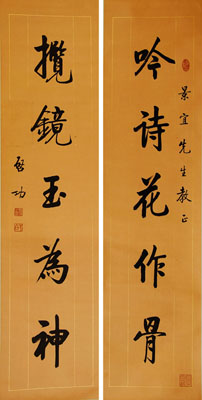 吟诗花作骨
景宜先生教正
揽镜玉為神
启功